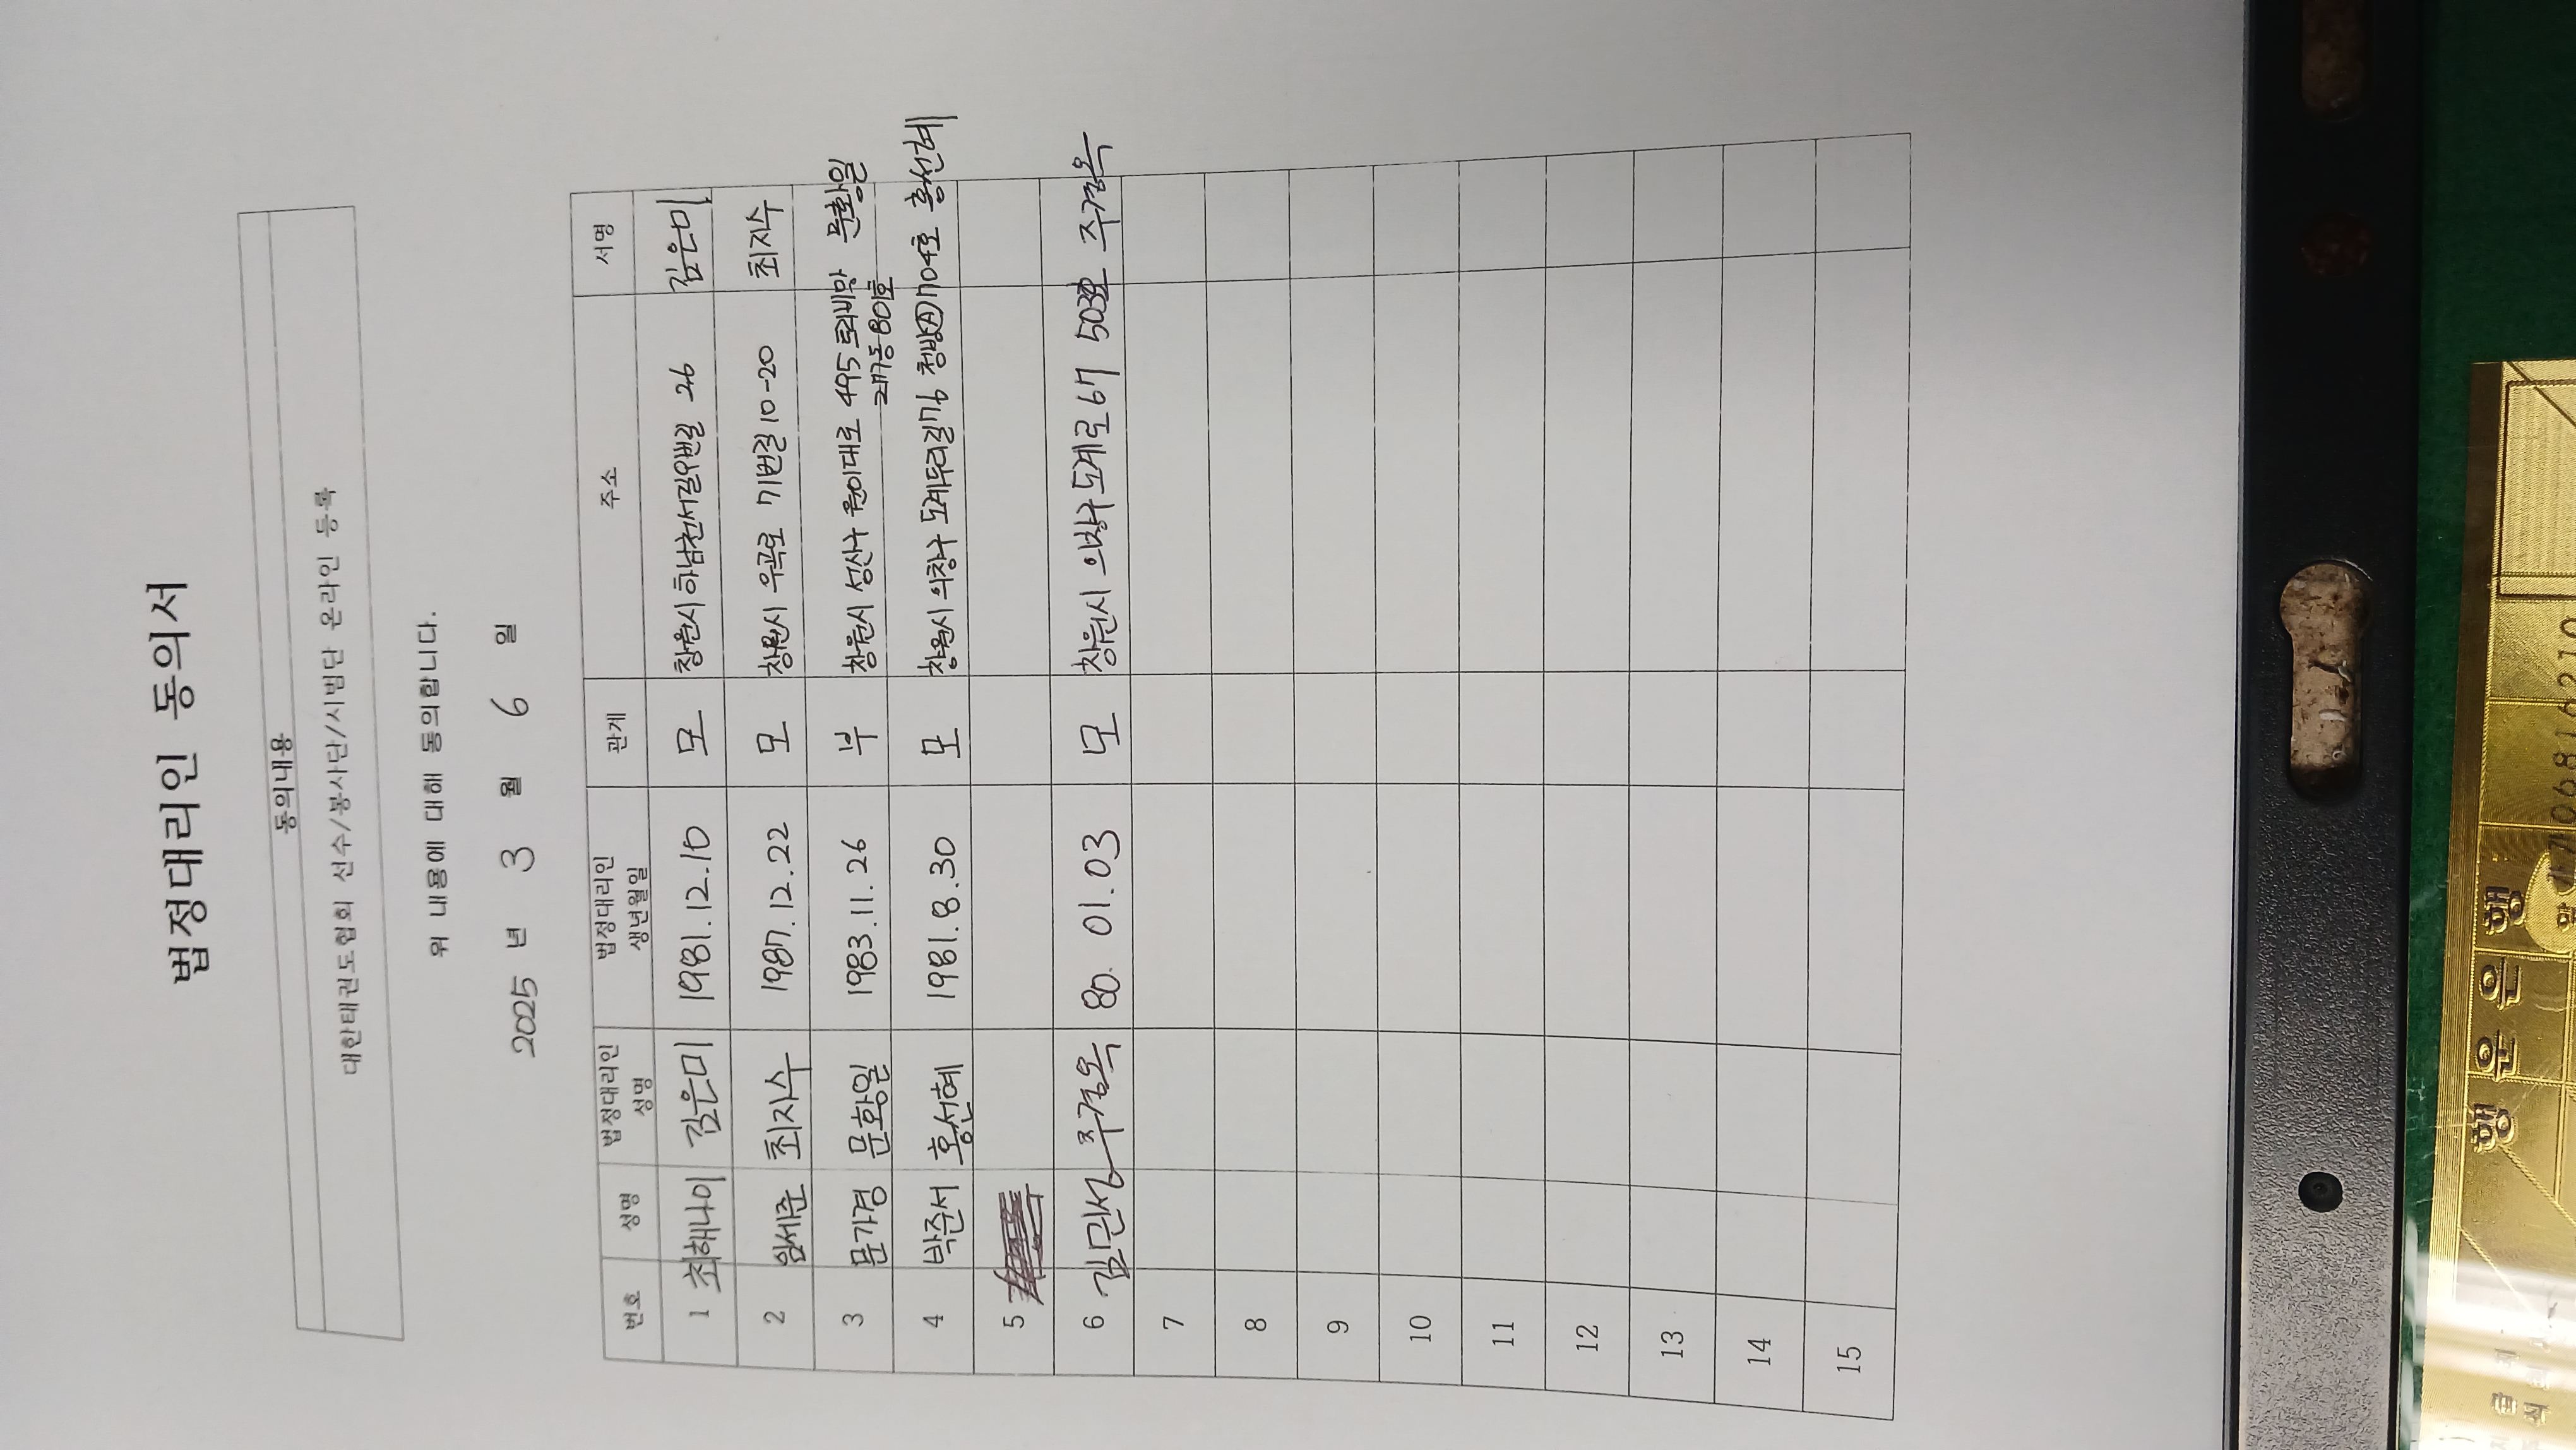 법정대리인 동의서
동의내용
대한태권도협회 선수/봉사단/시범단 온라인 등록
위 내용에 대해 동의합니다.
2025 년 3 월 6 일
번호 성명 법정대리인 성명 법정대리인 생년월일 관계 주소 서명
1 최해나이 김은미 1981.12.10 모 창원시 하남천서길 26 김은미
2 임세준 최지수 1987.12.22 모 창원시 우곡로 71번길 10-20 최지수
3 문가경 문황일 1983.11.26 부 창원시 성산구 원이대로 495 트리비앙 217동 801호 문황일
4 박준서 홍선혜 1981.8.30 모 창원시 의창구 도계두리길 76 704호 홍선혜
5
6 김민성 주경옥 80. 01. 03 모 창원시 의창구 도계로 67 503호 주경옥
7
8
9
10
11
12
13
14
15
행 운 은 행